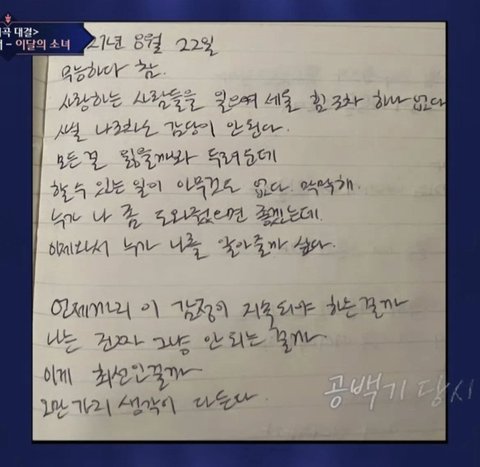 곡 대결>
- 이달의 소녀
21년 8월 22일
무능하다 참.
사랑하는 사람들을 일으켜 세울 힘조차 하나 없다
사실 나조차도 감당이 안된다.
모든걸 잃을까봐 두려운데
할 수 있는 일이 아무것도 없다. 막막해.
누가 나 좀 도와줬으면 좋겠는데.
이제와서 누가 나를 알아줄까 싶다.
언제까지 이 감정이 지속되야 하는걸까
나는 진짜 그냥 안 되는 걸까
이게 최선인걸까
오만가지 생각이 다든다.
공백기 당시